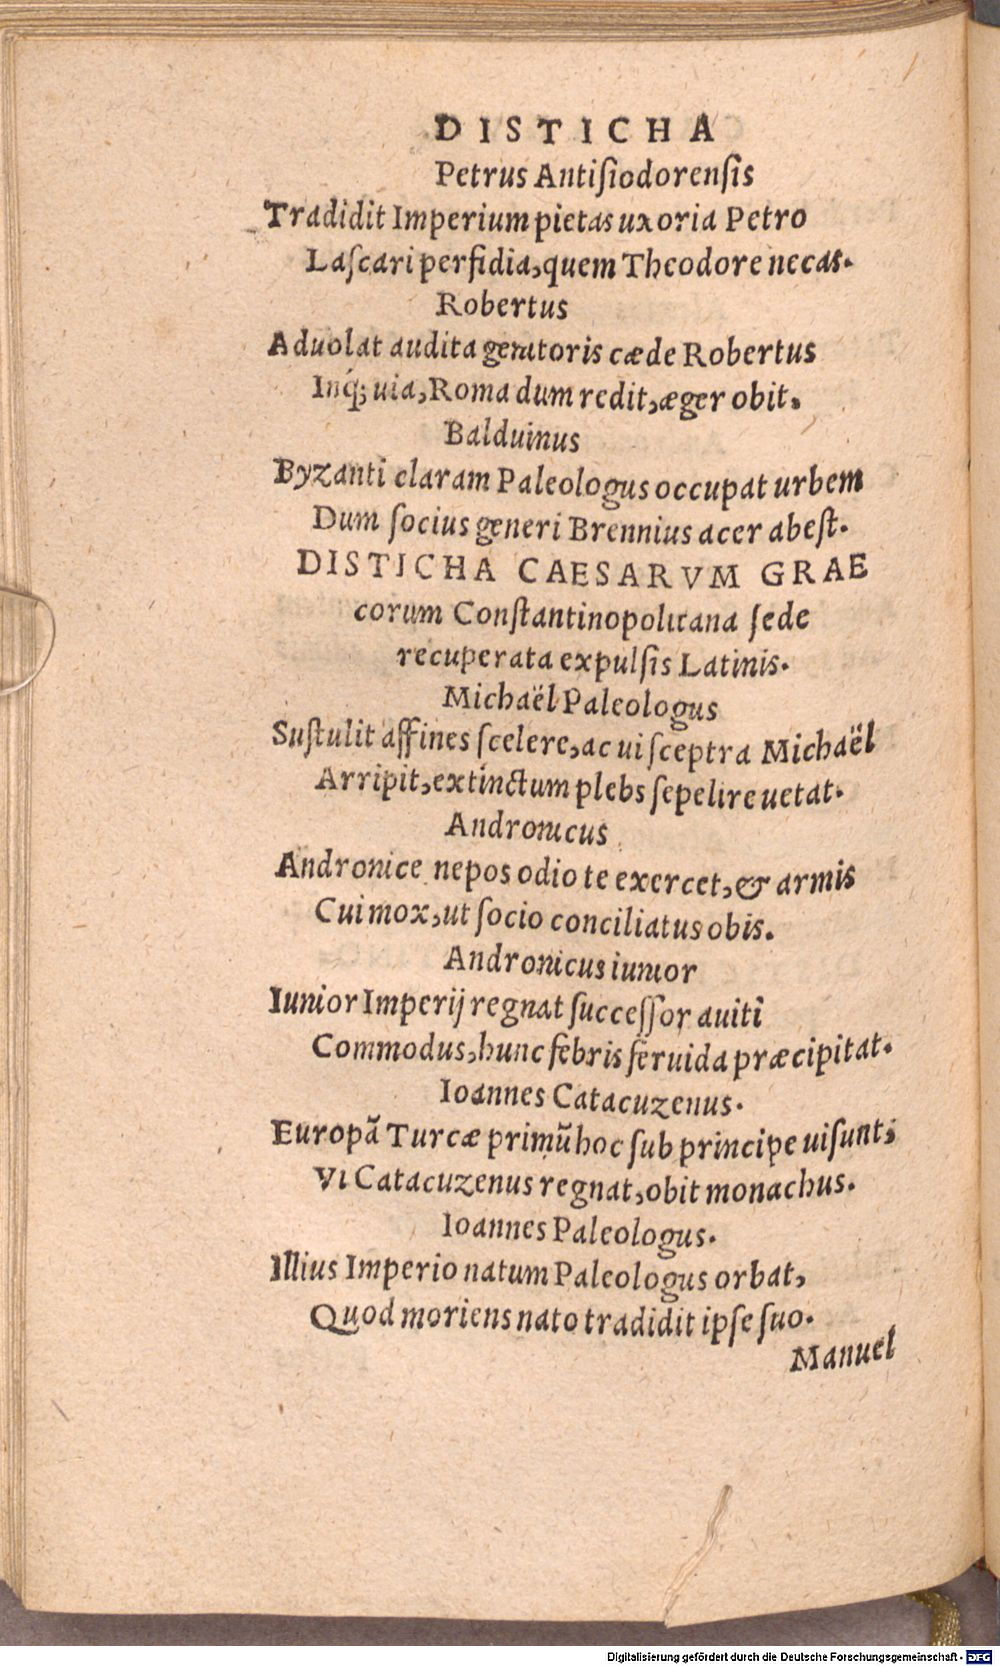 DISTICHA
Petrus Antiſiodorenſis
Tradidit Imperium pietas uxoria Petro
Laſcari perfidia, quem Theodore necas.
Robertus
Aduolat audita genitoris cæde Robertus
Inq́; uia, Roma dum redit, æger obit.
Balduinus
Byzanti claram Paleologus occupat urbem
Dum ſocius generi Brennius acer abeſt.
DISTICHA CAESARVM GRAE
corum Conſtantinopolitana ſede
recuperata expulſis Latinis.
Michaël Paleologus
Suſtulit affines ſcelere, ac ui ſceptra Michaël
Arripit, extinctum plebs ſepelire uetat.
Andronicus
Andronice nepos odio te exercet, & armis
Cui mox, ut ſocio conciliatus obis.
Andronicus iunior
Iunior Imperij regnat ſucceſſor auiti
Commodus, hunc febris feruida præcipitat.
Ioannes Catacuzenus.
Europã Turcæ primũ hoc ſub principe uiſunt;
Vi Catacuzenus regnat, obit monachus.
Ioannes Paleologus.
Illius Imperio natum Paleologus orbat,
Quod moriens nato tradidit ipſe ſuo.
Manuel
Digitalisierung gefördert durch die Deutsche Forschungsgemeinschaft - DFG